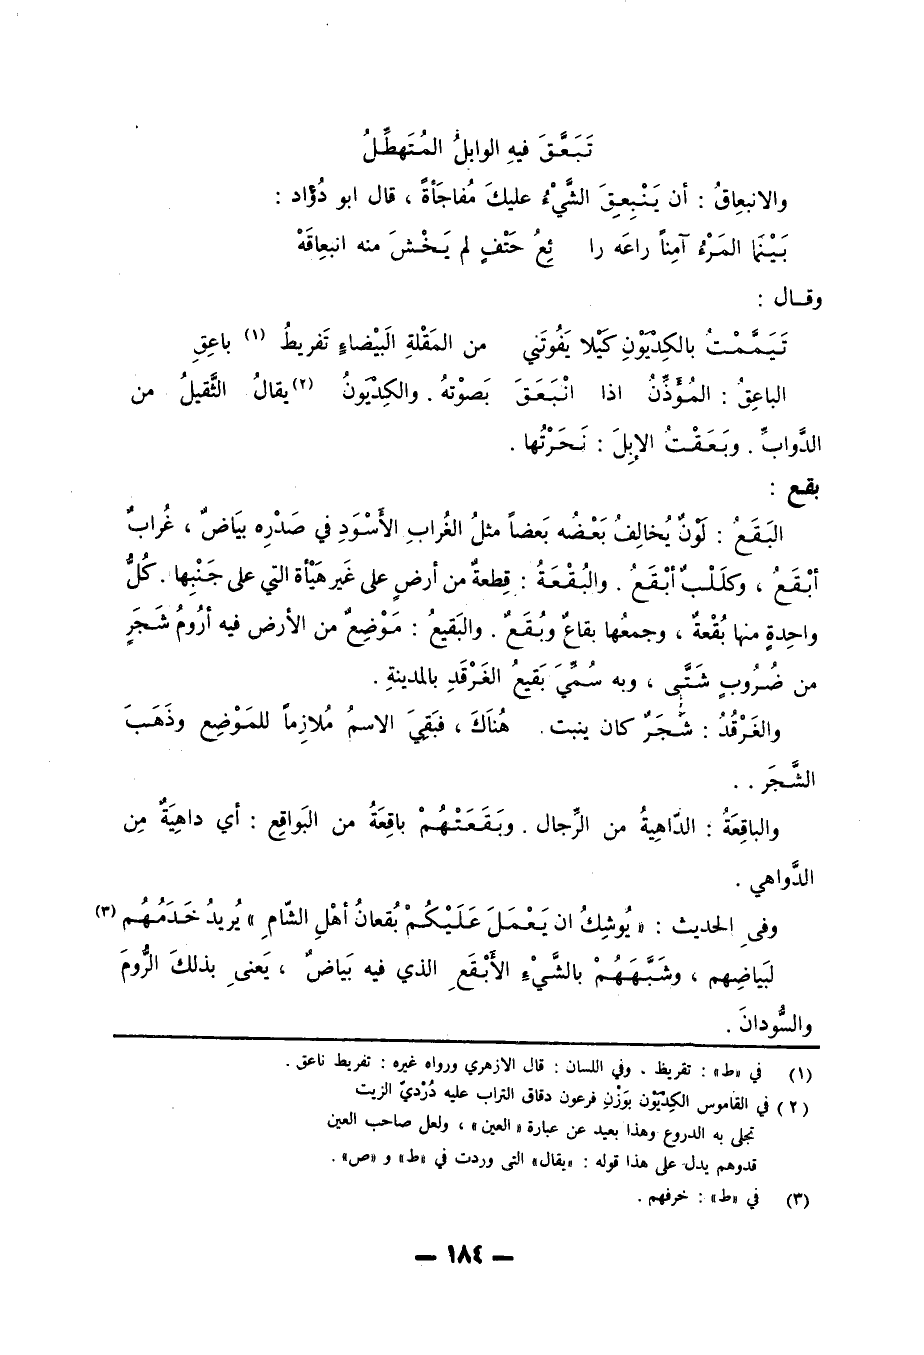 تَبَعَّقَ فيهِ الوابلُ المُتَهطِّلُ
والانبعِاقُ : أن يَنْبِعِقَ الشَّيْءُ عليكَ مُفاجَأةً ، قال ابو دُؤاد :
بَيْنَما المَرْءُ آمِناً راعَه را    ئِعُ حَتْفٍ لم يَخْشَ منه انبعِاقَهْ
وقال :
تَيَمَّمْتُ بالكِدْيَوْنِ كَيْلا يَفُوتَني    من المَقْلةِ البَيْضاءِ تَفريطُ (١) باعِقِ
الباعِقُ : المُؤَذِّنُ اذا انْبَعَقَ بَصوْتهُ . والكِدْيَونُ (٢) يقالُ الثَّقيلُ من
الدَّوابِّ . وبَعَقْتُ الإبلَ : نَحَرْتُها .
بقع :
البَقَعُ : لَوْنٌ يُخالِفُ بَعْضُه بَعضاً مثلُ الغُرابِ الأَسْوَدِ في صَدْرِه بيَاضٌ ، غُرابٌ
أبْقَعُ ، وكَلَلْبٌ أبْقَعُ . والبُقْعَةُ : قِطعةٌ من أرضٍ على غَيرِ هَيْأة التي على جَنْبِها . كُلُّ
واحِدةٍ منها بُقْعةٌ ، وجمعُها بقاعٌ وبُقَعٌ . والبَقيعُ : مَوْضِعٌ من الأرض فيه أرُومُ شَجَرٍ
من ضُرُوبٍ شَتَّى ، وبه سُمِّيَ بَقيعُ الغَرْقَدِ بالمدينةِ .
والغَرْقُدُ : شَجَرٌ كان ينبت . هُنَاكَ ، فبَقِيَ الاسمُ مُلازِماً للمَوْضِعِ وذَهَبَ
الشَّجَر . .
والباقِعَةُ : الدّاهيةُ من الرِّجال . وبَقَعَتْهُمْ باقِعَةُ من البَواقعِ : أي داهِيَةٌ مِن
الدَّواهي .
وفى الحديث : « يُوشِكُ ان يَعْمَلَ عَلَيْكُمْ بُقعانُ أهْلِ الشّامِ » يُريدُ خَدَمُهُم (٣)
لبَياضِهم ، وشَبَّهَهُمْ بالشَّيْءِ الأَبْقَعِ الذي فيه بَياضٌ ، يَعنى بذلكَ الرُّومَ
والسُّودانَ .
(١) في «ط» : تقريظ . وفي اللسان : قال الازهري ورواه غيره : تفريط ناعق .
(٢) في القاموس الكِدْيَوْن بوَزْنِ فرعون دقاق التراب عليه دُرْديّ الزيت
تجلى به الدروع وهذا بعيد عن عبارة « العين » ، ولعل صاحب العين
قدوهم يدل على هذا قوله : «يقال» التى وردت في «ط» و «ص» .
(٣) في «ط» : خرفهم .
— ١٨٤ —